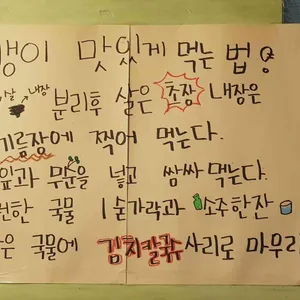 맛있게 먹는 법
살 내장
분리후 살은 초장 내장은
기름장에 찍어 먹는다.
무순을 넣고 쌈싸 먹는다.
국물 1숟가락과 소주한잔
국물에 김치칼국수 사리로 마무리